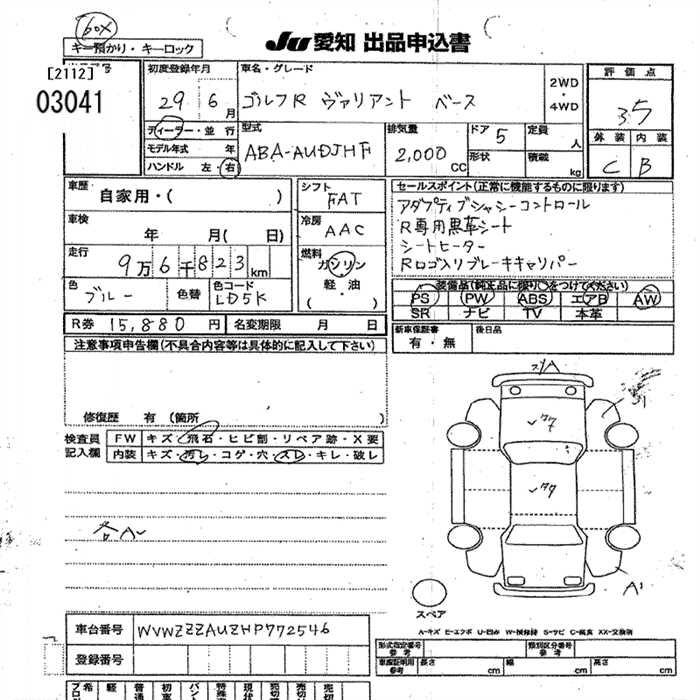 box
キー預かり・キーロック
JU 愛知 出品申込書
[2112]
03041
初度登録年月
29 6月
車名・グレード
ゴルフR ヴァリアント ベース
2WD
・
4WD
評価点
3.5
外装 内装
C B
ディーラー・並行
モデル年式 年
ハンドル 左・右
型式
ABA-AUDJHF
排気量
2,000 CC
ドア 5
形状
定員 人
積載 kg
車歴
自家用・( )
車検
年 月( 日)
走行
9万6千823km
色
ブルー
色替
色コード
LD5K
シフト
FAT
冷房
AAC
燃料
ガソリン
軽・油
( ・ )
セールスポイント(正常に機能するものに限ります)
アダプティブシャシーコントロール
R専用黒革シート
シートヒーター
Rロゴ入りブレーキキャリパー
装備品(純正品に限り○をつけてください)
PS PW ABS エアB AW
SR ナビ TV 本革
R券 15,880円 名変期限 月 日
新車保証書
有・無
後日品
注意事項申告欄(不具合内容等は具体的に記入して下さい)
修復歴 有 (箇所 )
検査員
記入欄
FW キズ・飛石・ヒビ割・リペア跡・X要
内装 キズ・汚レ・コゲ・穴・スレ・キレ・破レ
各A
A
A1
スペア
A-キズ E-エクボ U-凹み W-補修跡 S-サビ C-腐食 XX-交換済
車台番号 WVWZZZAUZHP772546
登録番号
形式指定番号
参考
類別区分番号
参考
車庫証明用
参考
長さ cm 幅 cm 高さ cm